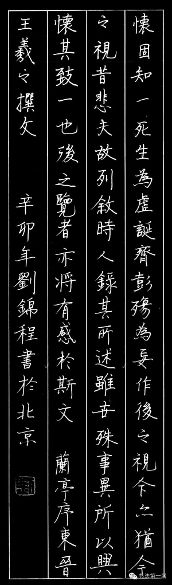 懷固知一死生為虛誕齊彭殤為妄作後之視今亦猶今
之視昔悲夫故列敘時人錄其所述雖世殊事異所以興
懷其致一也後之覽者亦将有感於斯文 蘭亭序東晉
王羲之撰文 辛卯年劉錦程書於北京